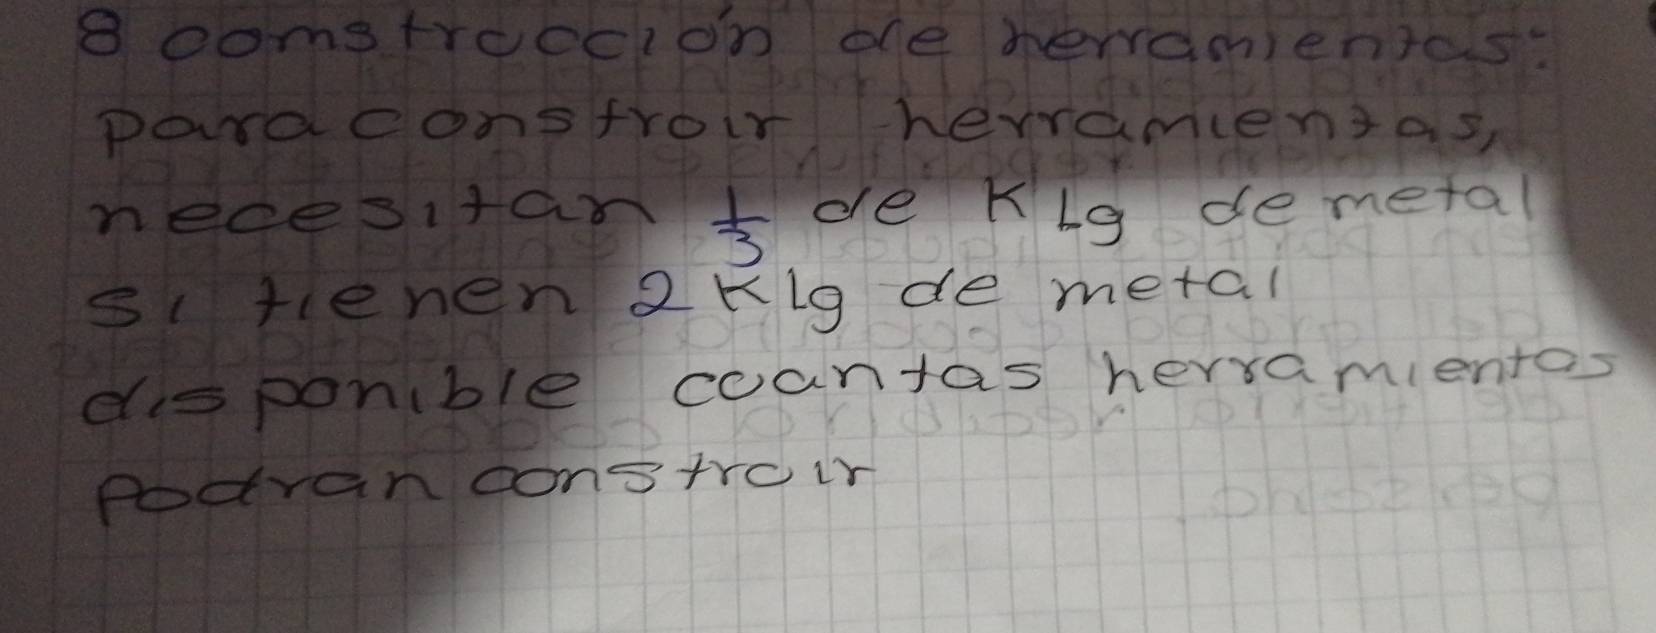 8 comstrucción de herramientas:
para construir herramientas,
necesitan 1/3 de Klg de metal
si tienen 2 Klg de metal
disponible cuantas herramientas
podran construir